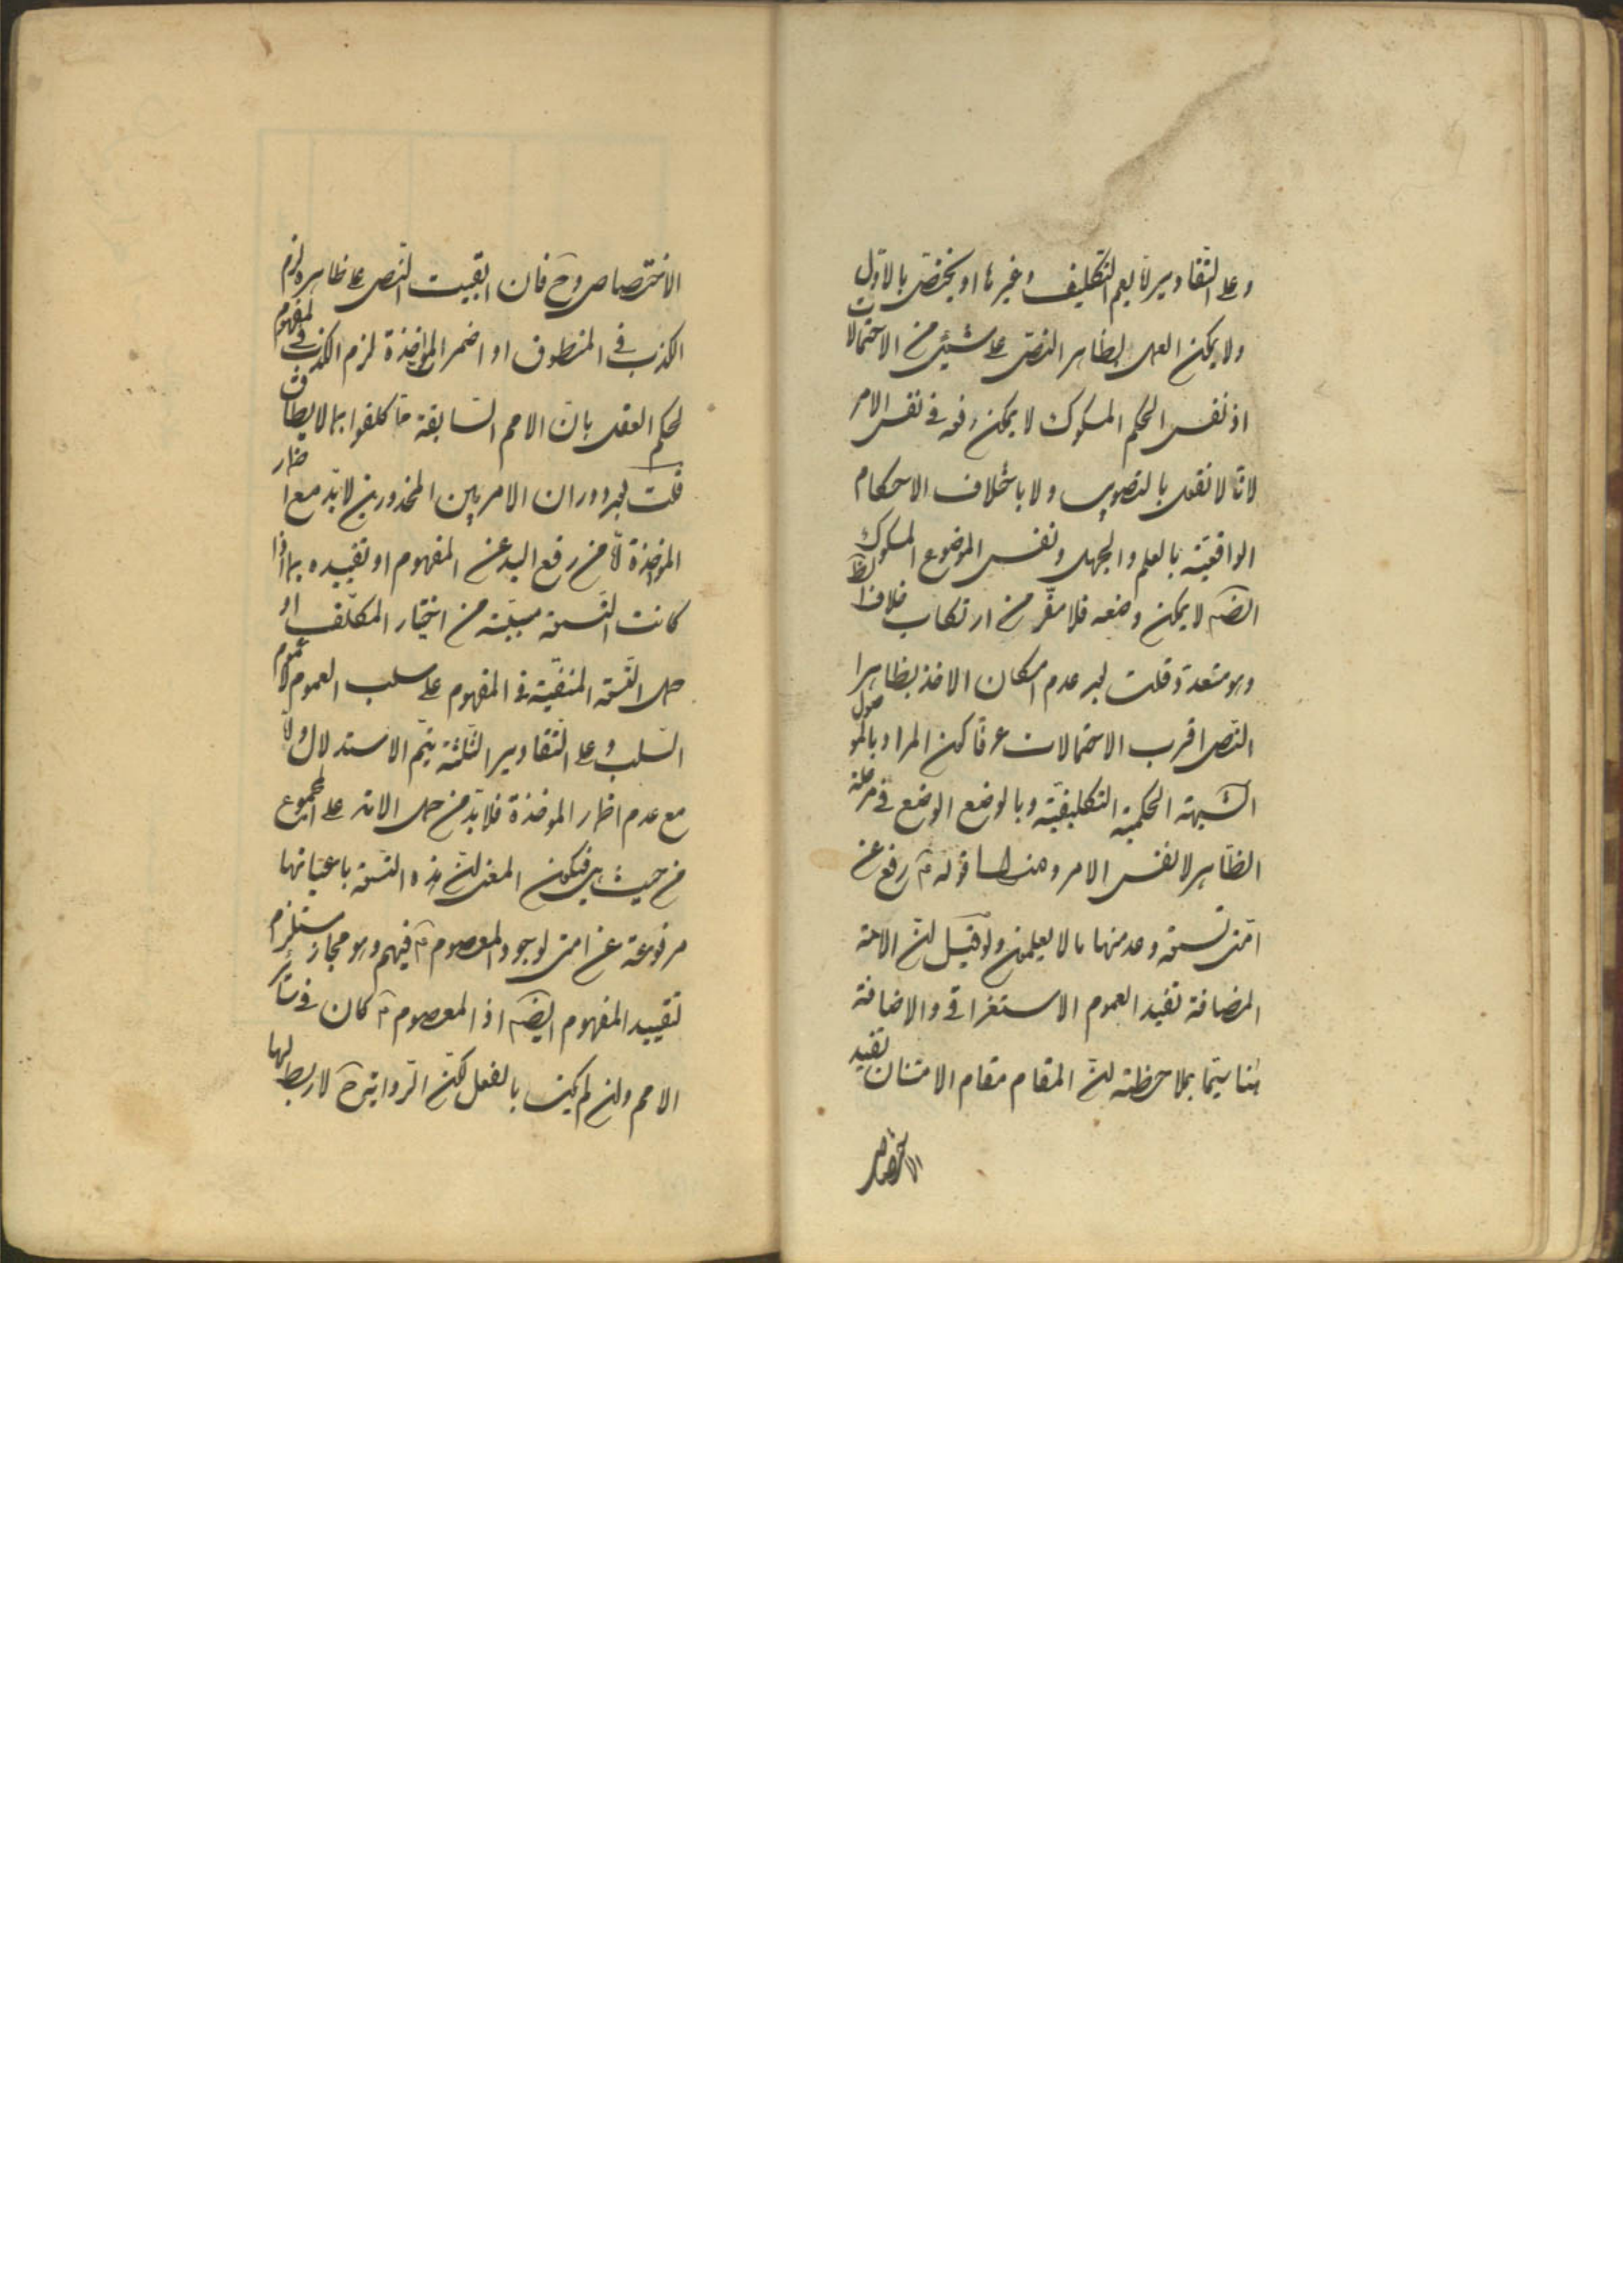 وعلى التقادير لا يعم التكليف وغيرها او يختص بالاول
ولا يمكن العمل بظاهر النص على شيئ من الاحتمالات
اذ نفس الحكم المشكوك لا يمكن رفعه في نفس الامر
لانا لا نقول بالتصويب ولا باختلاف الاحكام
الواقعية بالعلم والجهل ونفس الموضوع المشكوك
ايضا لا يمكن وضعه فلا مفر من ارتكاب خلاف الظ
وهو متعدد قلت بعد عدم امكان الاخذ بظاهر
النص اقرب الاحتمالات عرفا كون المراد بالموصول
الشبهة الحكمية التكليفية وبالوضع الوضع في مرحلة
الظاهر لا نفس الامر ومنها قوله رفع عن
امتي تسعة وعد منها ما لا يعلمون ولو قيل ان الامة
المضافة تفيد العموم الاستغراقي والاضافة
هنا سيما بملاحظة ان المقام مقام الامتنان تفيد
الاختصاص
الاختصاص وح فان ابقيت النص على ظاهره لزم
الكذب في المنطوق او اضمر المؤاخذة لزم الكذب في المفهوم
لحكم العقل بان الامم السابقة ما كلفوا بما لا يطاق
قلت بعد دوران الامر بين المحذورين لابد مع اضمار
المؤاخذة من رفع اليد عن المفهوم او تقييده بما اذا
كانت التسعة مسببة من اختيار المكلف او
حمل التسعة المنفية في المفهوم على سلب العموم لا عموم
السلب وعلى التقادير الثلثة يتم الاستدلال ولا
مع عدم اضمار المؤاخذة فلابد من حمل الامة على المجموع
من حيث هي فيكون المعنى ان هذه التسعة باعيانها
مرفوعة عن امتي لوجود المعصوم فيهم وهو مجاز يستلزم
تقييد المفهوم ايضا اذ المعصوم كان في سائر
الامم وان لم يكن بالفعل لكن الرواية ح لا ربط لها